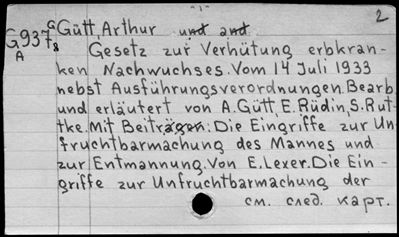 "1" 2
G937 G8 Gütt, Arthur und and.
A Gesetz zur Verhütung erbkran-
ken Nachwuchses. Vom 14 Juli 1933
nebst Ausführungsverordnungen. Bearb
und erläutert von A. Gütt, E. Rüdin, S. Rut-
tke. Mit Beiträgen: Die Eingriffe zur Un
fruchtbarmachung des Mannes und
zur Entmannung. Von E. Lexer. Die Ein-
griffe zur Unfruchtbarmachung der
см. след. карт.